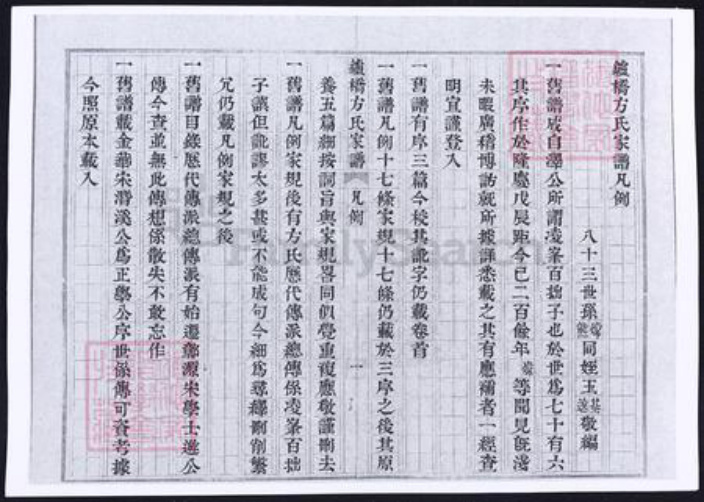 鑪橋方氏家譜凡例
八十三世孫 同姪玉 敬編
一舊譜成自澤公所謂凌峯百拙子也於世爲七十有六
其序作於隆慶戊辰距今已二百餘年 等聞見旣淺
未暇廣稽博訪就所據詳悉載之其有應補者一經查
明宜謹登入
一舊譜有序三篇今校其訛字仍載卷首
一舊譜凡例十七條家規十七條仍載於三序之後其原
鑪橋方氏家譜 凡例 一
養五篇細按詞旨與家規畧同似覺重複應敬謹刪去
一舊譜凡例家規後有方氏歷代傳派總傳係凌峯百拙
子譔但訛謬太多甚或不能成句今細爲尋繹刪削繁
冗仍載凡例家規之後
一舊譜目錄歷代傳派總傳派有始遷 源宋學士遜公
傳今查並無此傳想係散失不敢忘作
一舊譜載金華宋濳溪公爲正學公序世係傳可資考據
今照原本載入
FamilySearch